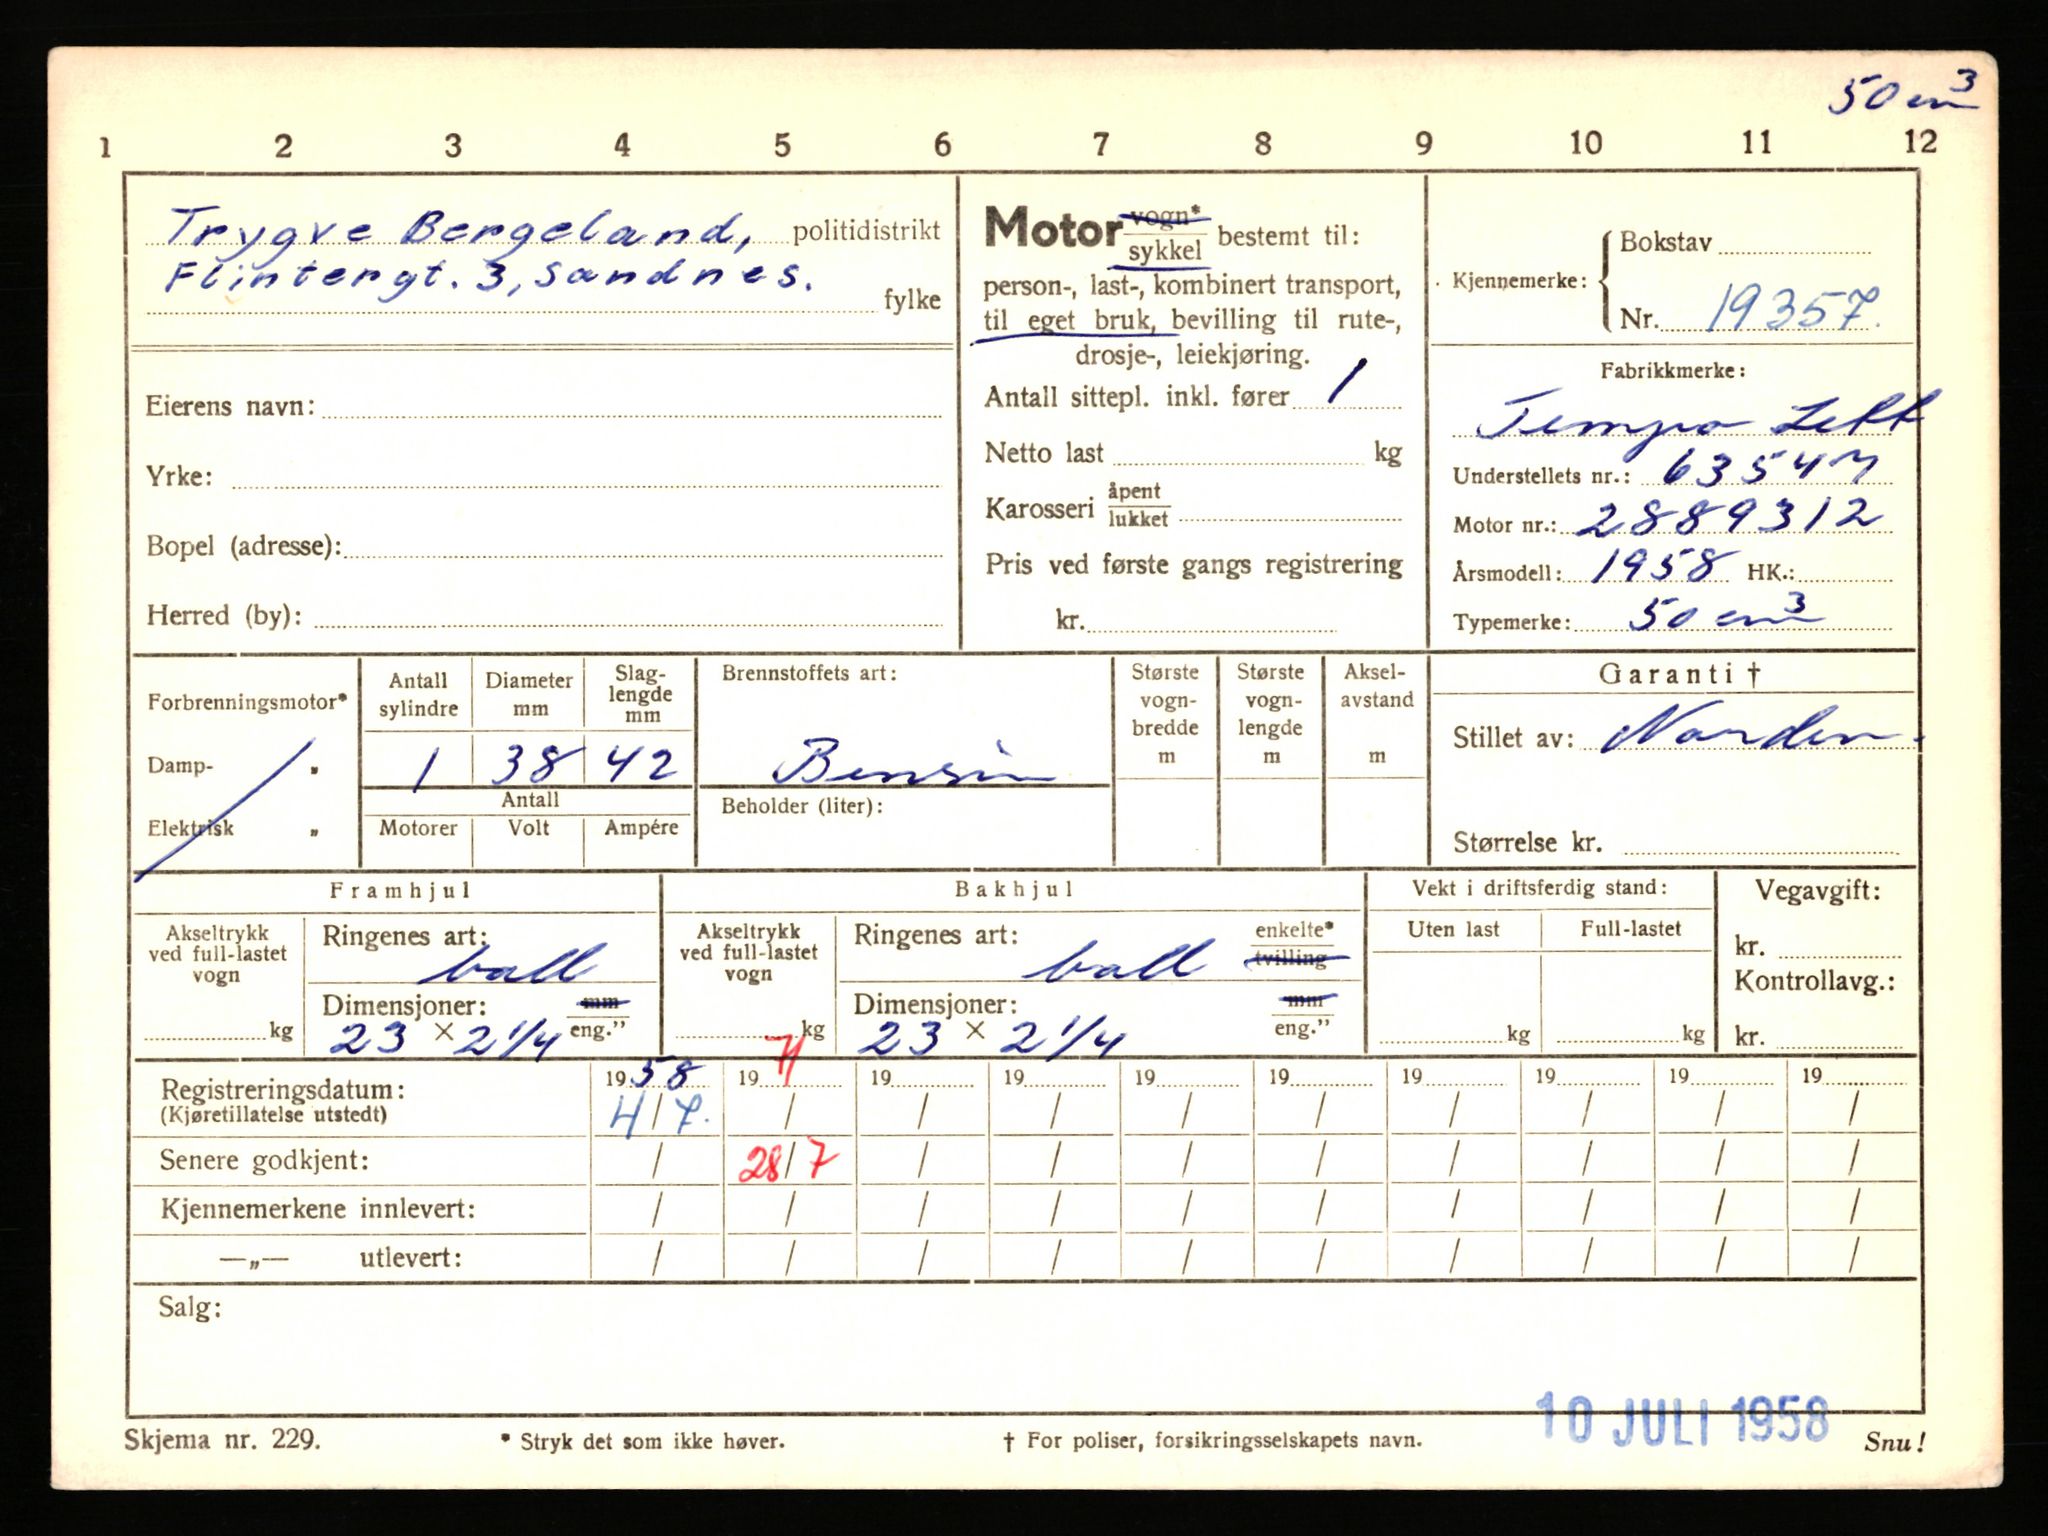 50 cm3
1 2 3 4 5 6 7 8 9 10 11 12
Trygve Bergeland, politidistrikt
Flintergt. 3, Sandnes.
fylke
Eierens navn:
Yrke:
Bopel (adresse):
Herred (by):
Motor vogn*
sykkel bestemt til:
person-, last-, kombinert transport,
til eget bruk, bevilling til rute-,
drosje-, leiekjøring.
Antall sittepl. inkl. fører 1
Netto last kg
Karosseri åpent
lukket
Pris ved første gangs registrering
kr.
Kjennemerke: Bokstav
Nr. 19357.
Fabrikkmerke:
Tempo Lett
Understellets nr.: 6354M
Motor nr.: 2889312
Årsmodell: 1958 HK.:
Typemerke: 50 cm3
Forbrenningsmotor*
Damp- „
Elektrisk „
Antall sylindre
Diameter mm
Slag-
lengde
mm
1 38 42
Antall
Motorer Volt Ampére
Brennstoffets art:
Bensin
Beholder (liter):
Største
vogn-
bredde
m
Største
vogn-
lengde
m
Aksel-
avstand
m
Garanti †
Stillet av: Norden.
Størrelse kr.
Framhjul
Akseltrykk
ved full-lastet
vogn
kg
Ringenes art:
ball
Dimensjoner: mm
23 × 2 1/4 eng.”
Bakhjul
Akseltrykk
ved full-lastet
vogn
kg
Ringenes art: enkelte*
ball tvilling
Dimensjoner: mm
23 × 2 1/4 eng.”
Vekt i driftsferdig stand:
Uten last Full-lastet
kg kg
Vegavgift:
kr.
Kontrollavg.:
kr.
Registreringsdatum: 1958 1971 19 19 19 19 19 19 19 19
(Kjøretillatelse utstedt) 4/7. / / / / / / / / /
Senere godkjent: / 28/7 / / / / / / / /
Kjennemerkene innlevert: / / / / / / / / / /
—„— utlevert: / / / / / / / / / /
Salg:
10 JULI 1958
Skjema nr. 229. * Stryk det som ikke høver. † For poliser, forsikringsselskapets navn. Snu!